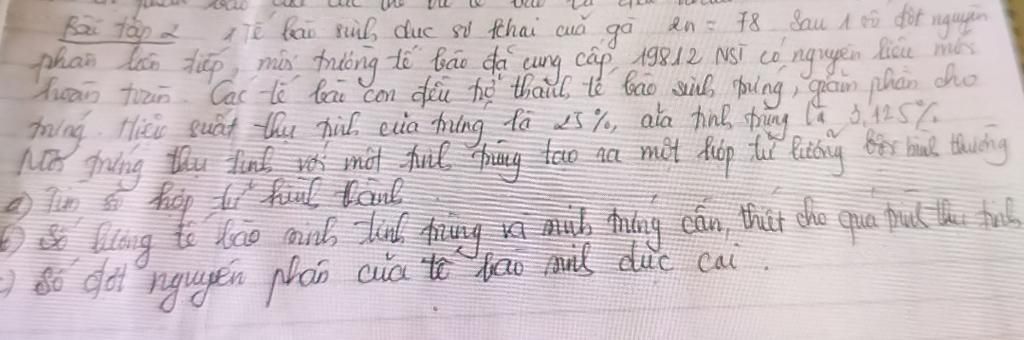 Bài tập 2 1 tế bào sinh dục sơ khai của gà 2n = 78 sau 1 số đợt nguyên
phân liên tiếp, môi trường tế bào đã cung cấp 19812 NST có nguyên liệu mới
hoàn toàn. Các tế bào con đều trở thành tế bào sinh trứng, giảm phân cho
trứng. Hiệu suất thụ tinh của trứng là 25%, của tinh trùng là 3,125%.
Mỗi trứng thụ tinh với một tinh trùng tạo ra một hợp tử lưỡng bội bình thường
a) Tìm số hợp tử hình thành
b) Số lượng tế bào sinh tinh trùng và sinh trứng cần thiết cho quá trình thụ tinh
c) Số đợt nguyên phân của tế bào sinh dục cái.